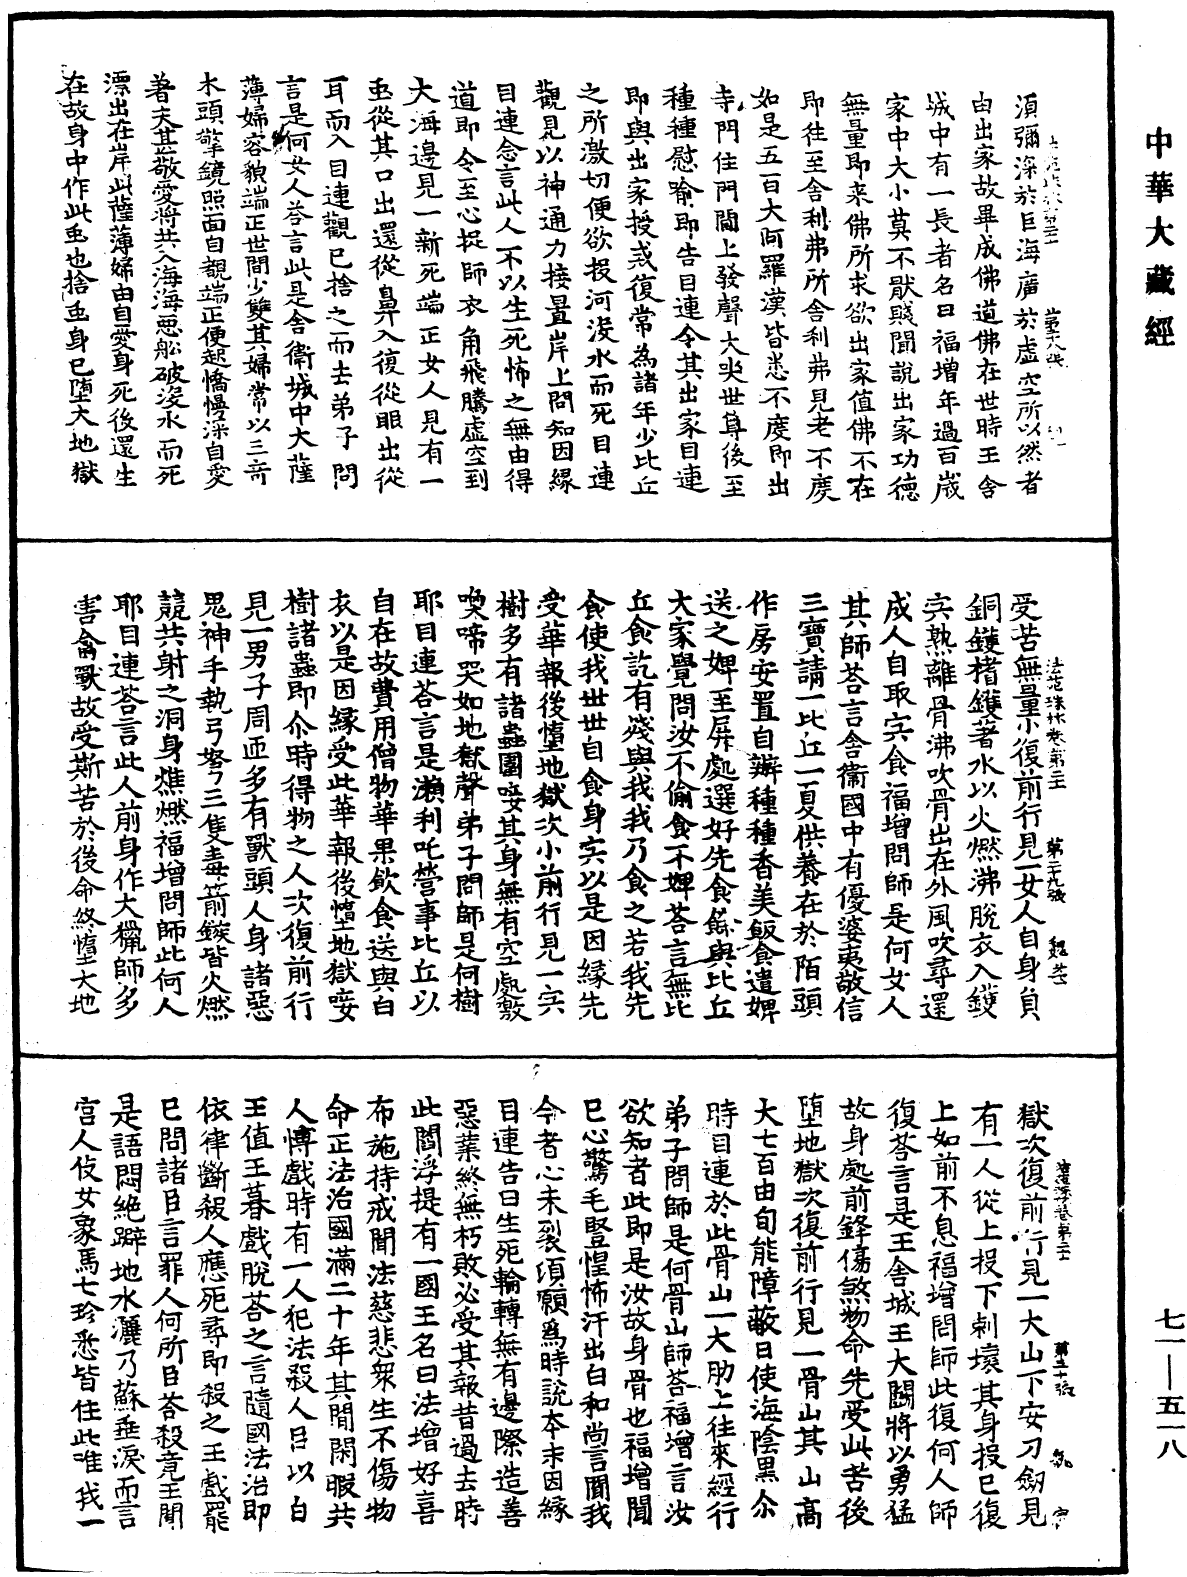 中華大藏經
七一—五一八
須彌深於巨海廣於虛空所以然者
由出家故畢成佛道佛在世時王舍
城中有一長者名曰福增年過百歲
家中大小莫不猒賤聞說出家功德
無量即来佛所求欲出家值佛不在
即往至舍利弗所舍利弗見老不度
如是五百大阿羅漢皆悉不度即出
寺門住門閫上發聲大哭世尊後至
種種慰喻即告目連令其出家目連
即與出家授戒復常為諸年少比丘
之所激切便欲投河沒水而死目連
觀見以神通力接置岸上問知因緣
目連念言此人不以生死怖之無由得
道即令至心捉師衣角飛騰虛空到
大海邊見一新死端正女人見有一
䖝從其口出還從鼻入復從眼出從
耳而入目連觀已捨之而去弟子問
言是何女人荅言此是舍衛城中大薩
薄婦容貌端正世間少雙其婦常以三奇
木頭擎鏡照面自覩端正便起憍慢深自愛
著夫甚敬愛將共入海海惡舩破沒水而死
漂出在岸此薩薄婦由自愛身死後還生
在故身中作此䖝也捨䖝身已墮大地獄
法苑珠林卷第二十二 第二十九張
受苦無量小復前行見一女人自身負
銅鑊榰鑊著水以火燃沸脫衣入鑊
宍熟離骨沸吹骨出在外風吹尋還
成人自取宍食福增問師是何女人
其師荅言舍衛國中有優婆夷敬信
三寶請一比丘一夏供養在於陌頭
作房安置自辦種種香美飯食遣婢
送之婢至屏處選好先食餘與比丘
大家覺問汝不偷食不婢荅言無比
丘食訖有殘與我我乃食之若我先
食使我世世自食身宍以是因緣先
受華報後墮地獄次小前行見一宍
樹多有諸蟲圍唼其身無有空處數
喚啼哭如地獄聲弟子問師是何樹
耶目連荅言是瀨利吒營事比丘以
自在故費用僧物華果飲食送與白
衣以是因緣受此華報後墮地獄唼
樹諸蟲即尒時得物之人次復前行
見一男子周迊多有獸頭人身諸惡
鬼神手執弓弩三隻毒箭鏃皆火燃
競共射之洞身燋燃福增問師此何人
耶目連荅言此人前身作大獵師多
害禽獸故受斯苦於後命終墮大地
獄次復前行見一大山下安刀劒見
有一人從上投下刺壞其身投已復
上如前不息福增問師此復何人師
復荅言是王舍城王大鬪將以勇猛
故身處前鋒傷煞物命先受此苦後
墮地獄次復前行見一骨山其山高
大七百由旬能障蔽日使海陰黑尒
時目連於此骨山一大肋上往來經行
弟子問師是何骨山師荅福增言汝
欲知者此即是汝故身骨也福增聞
已心驚毛豎惶怖汗出白和尚言聞我
今者心未裂須願為時說本末因緣
目連告曰生死輪轉無有邊際造善
惡業終無朽敗必受其報昔過去時
此閻浮提有一國王名曰法增好喜
布施持戒聞法慈悲眾生不傷物
命正法治國滿二十年其間閑暇共
人慱戲時有一人犯法殺人臣以白
王值王暮戲脫荅之言隨國法治即
依律斷殺人應死尋即殺之王戲罷
已問諸臣言罪人何所臣荅殺竟王聞
是語悶絶躃地水灑乃蘇垂淚而言
宮人伎女象馬七珍悉皆住此唯我一